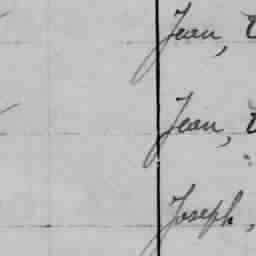 Jean,
Jean,
Joseph,